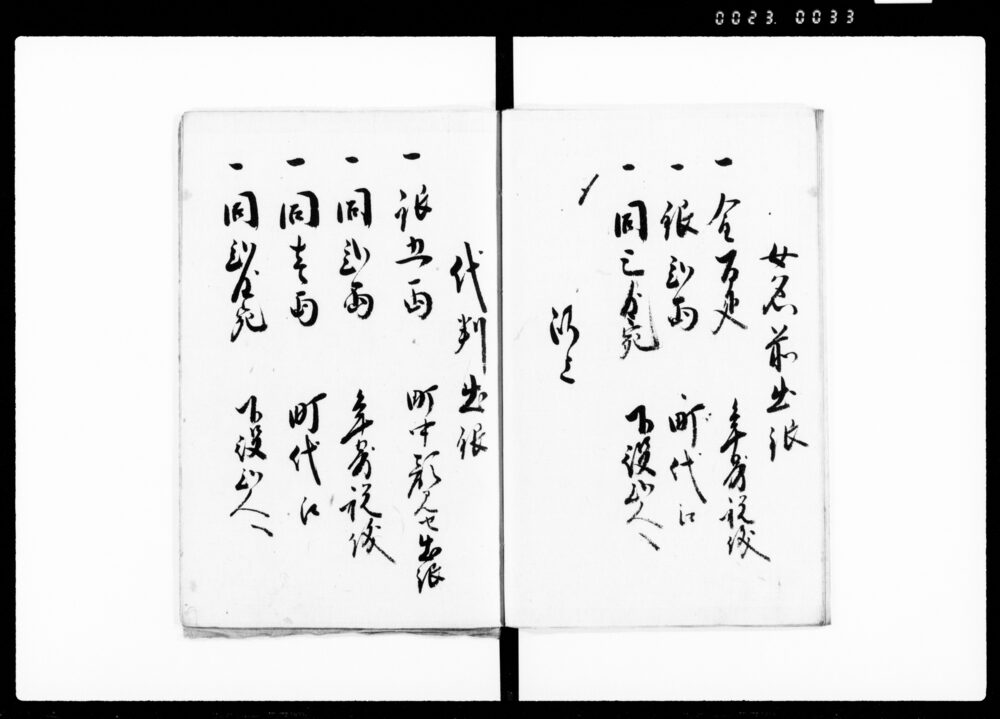 0023.0033
女名前出銀
一 金百疋 年寄祝儀
一 銀弐両 町代江
一 同三匁宛 下役弐人へ
代判出銀
一 銀五両 町中顔見せ出銀
一 同弐両 年寄祝儀
一 同壱両 町代江
一 同弐匁宛 下役弐人へ